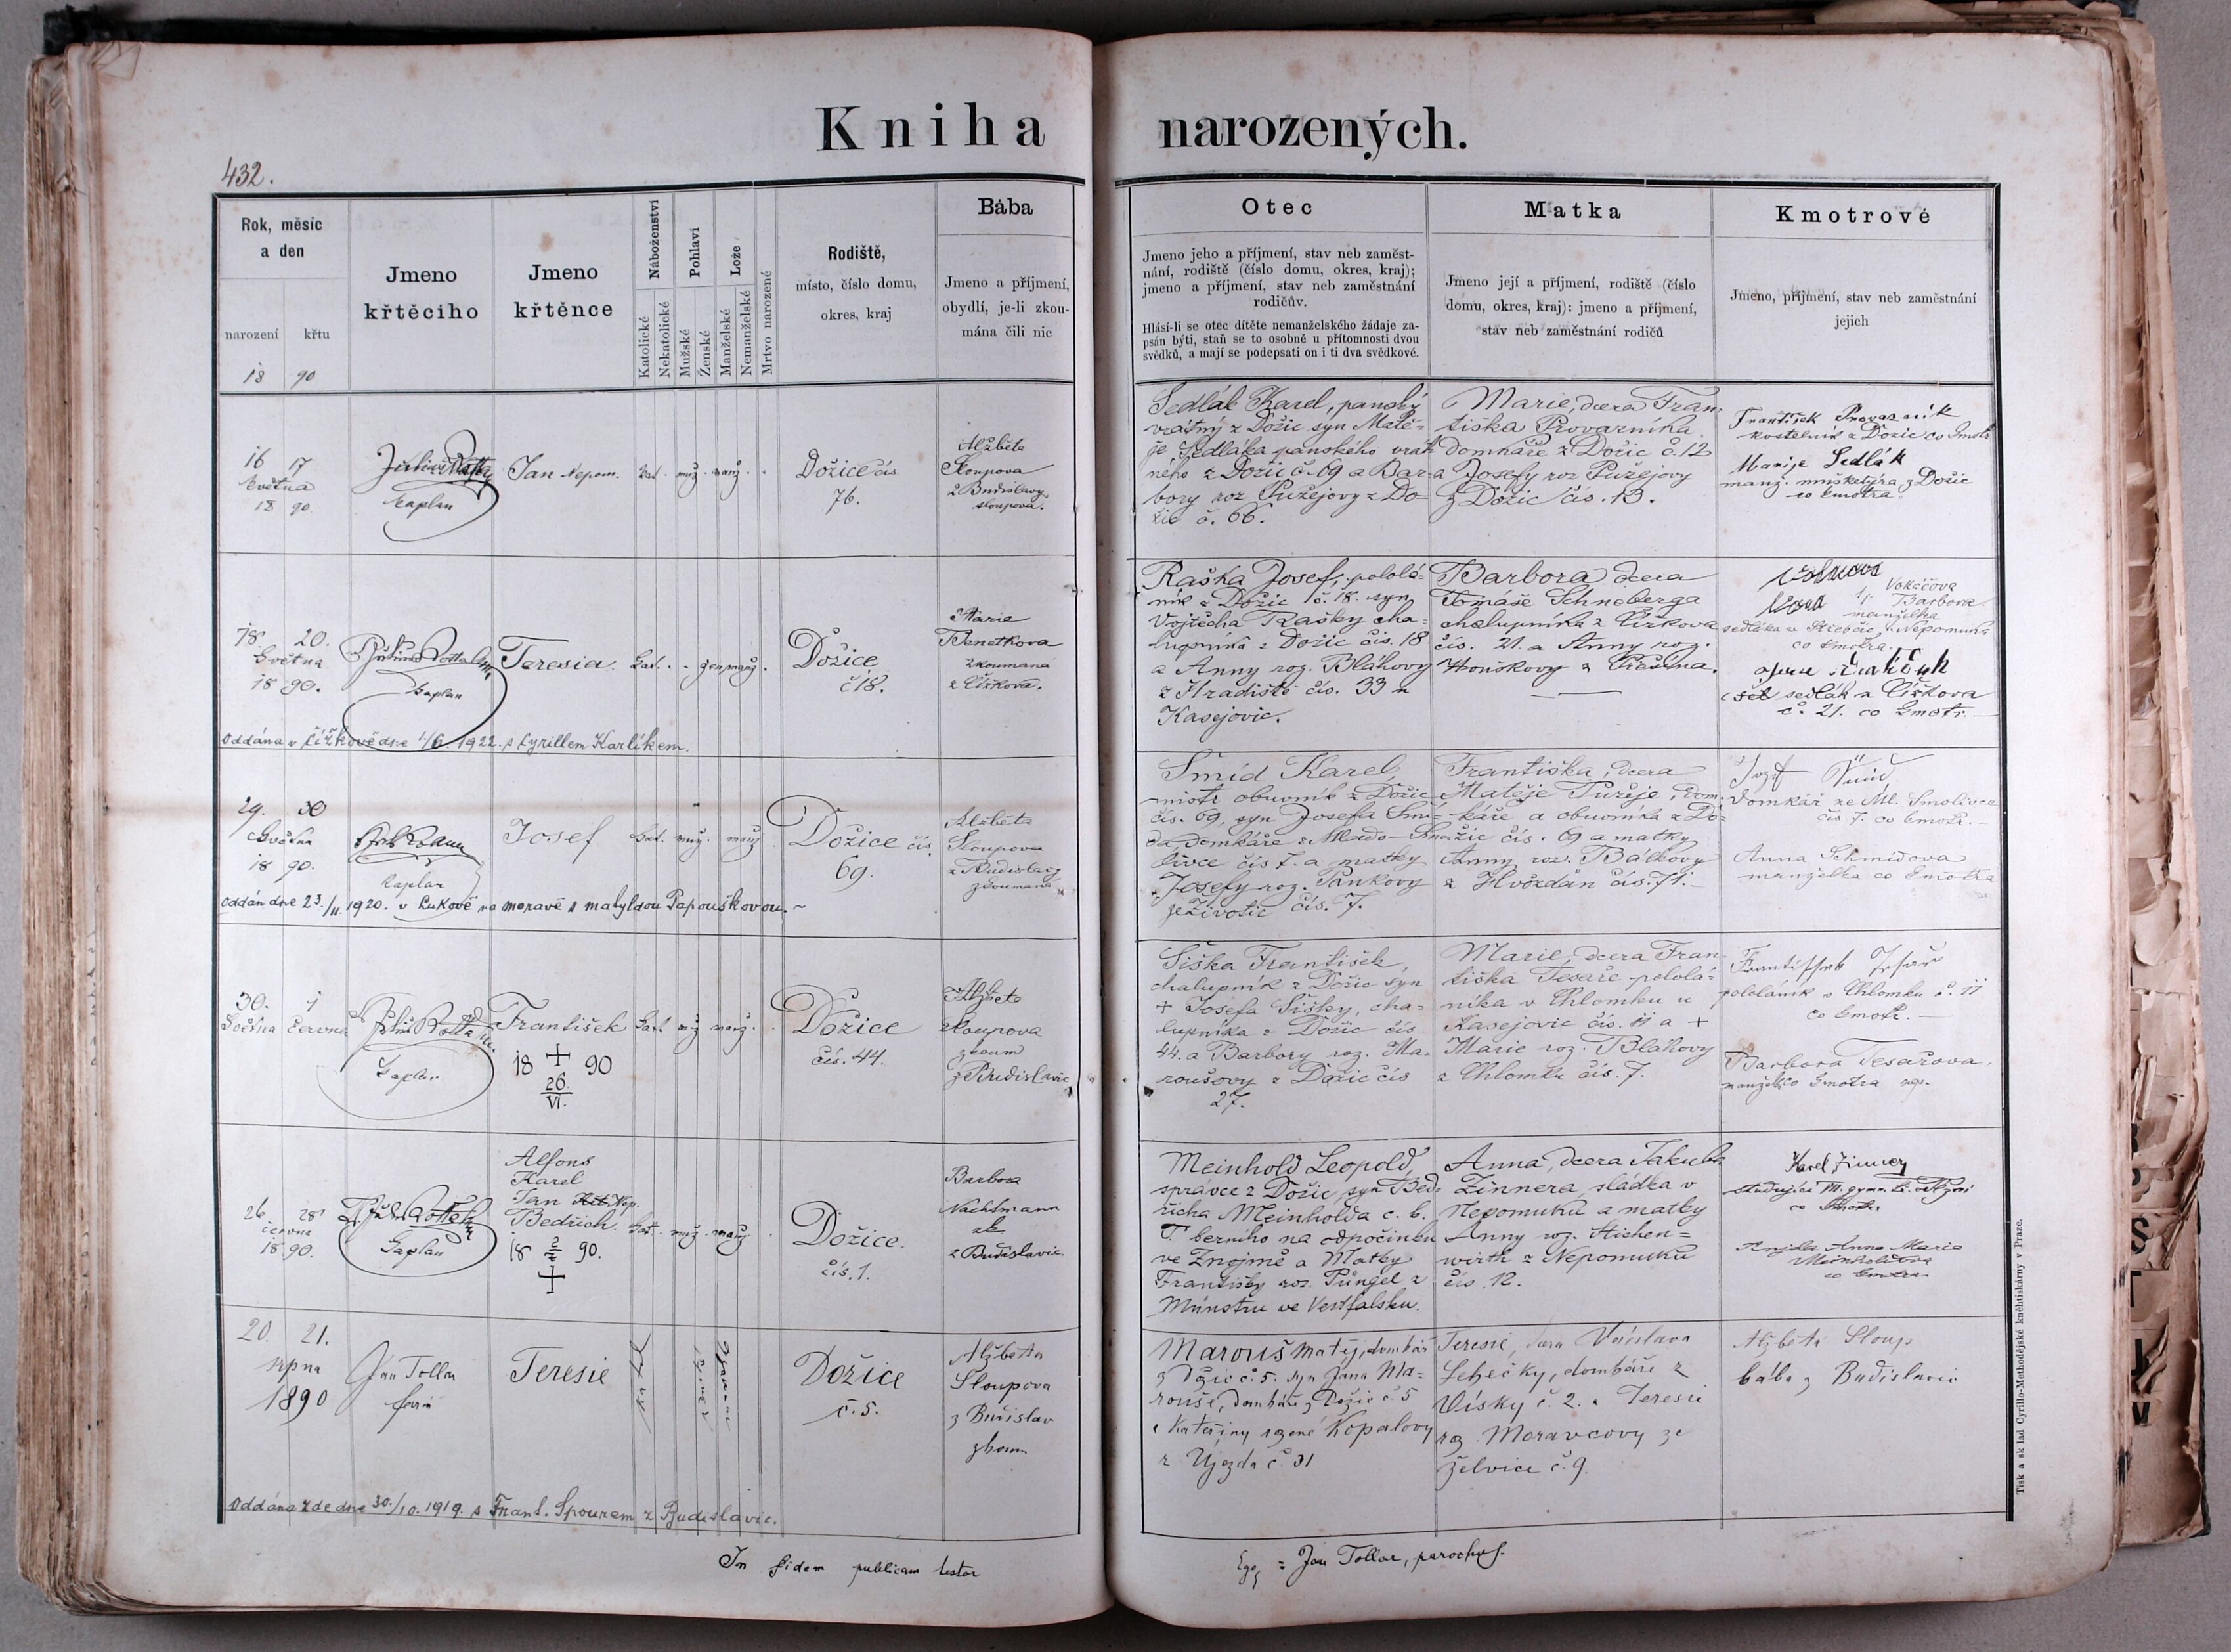 Kniha narozených.
432.
Rok, měsíc
a den
narození křtu
18 90
Jmeno
křtěcího
Jmeno
křtěnce
Náboženství
Katolické
Nekatolické
Pohlaví
Mužské
Ženské
Lože
Manželské
Nemanželské
Mrtvo narozené
Rodiště,
místo, číslo domu,
okres, kraj
Bába
Jmeno a příjmení,
obydlí, je-li zkou-
mána čili nic
Otec
Jmeno jeho a příjmení, stav neb zaměst-
nání, rodiště (číslo domu, okres, kraj);
jmeno a příjmení, stav neb zaměstnání
rodičův.
Hlásí-li se otec dítěte nemanželského žádaje za-
psán býti, staň se to osobně u přítomnosti dvou
svědků, a mají se podepsati on i ti dva svědkové.
Matka
Jmeno její a příjmení, rodiště (číslo
domu, okres, kraj): jmeno a příjmení,
stav neb zaměstnání rodičů
Kmotrové
Jmeno, příjmení, stav neb zaměstnání
jejich
16 17
května
18 90.
kaplan
Jan Nepom.
kat. muž. manž.
Dožice čís
76.
Alžběta
Sloupova
z Budislavy
Sedlák Karel, panský
vrátný z Dožic syn Matě-
je Sedláka panského vrát-
ného z Dožic č. 69 a Bar-
bory roz Pužejovy z Do-
žic č. 66.
Marie, dcera Fran-
tiška Provazníka
domkáře z Dožic č. 12
a Josefy roz Pužejovy
z Dožic čís. 13.
František Provazník
kostelník z Dožic co kmotr
Marije Sedlák
manž. mušketýra z Dožic
co kmotra
18 20.
Května
18 90.
Kaplan
Teresia
kat. žen. manž.
Dožice
č 18.
Marie
Benetkova
zkoumaná
z Čížkova.
Raška Josef, pololá-
ník z Dožic č. 18. syn
Vojtěcha Rašky cha-
lupníka z Dožic čís. 18
a Anny roz. Bláhovy
z Hradiště čís. 33 u
Kasejovic.
Barbora dcera
Tomáše Schneberga
chalupníka z Čížkova
čís. 21. a Anny roz.
Houškovy z Přešina.
Vokáčova
Barbora
manželka
sedláka z u Nepomuka
co kmotra.
sedlák z Čížkova
č. 21. co kmotr.
Oddána v Čížkově dne 1/6. 1922. s Cyrillem Karlíkem.
29. 30
Května
18 90.
Kaplan
Josef
kat. muž. manž.
Dožice čís.
69.
Alžběta
Sloupova
z Budislavy
zkoumaná
Šmíd Karel,
mistr obuvník z Dožic
čís. 69, syn Josefa Šmí-
da, domkáře z Mlado-Smo-
livce čís 7. a matky
Josefy roz. Pankovy
ze Životic čís. 7.
Františka, dcera
Matěje Pužeje, dom-
káře a obuvníka z Do-
žic čís. 69 a matky
Anny roz. Bálkovy
z Hvožďan čís. 71.
domkář ze Ml. Smolivce
čís 7. co kmotr.
Anna Schmidova
manželka co kmotra
Oddán dne 23./11. 1920. v Lukově na moravě s matyldou Papouškovou.
30. 1
Května Června
Kaplan
František
18 + 90
26.
VI.
kat. muž manž.
Dožice
čís. 44.
Alžběta
Sloupova
zkoum
z Budislavic
Šiška František,
chalupník z Dožic syn
+ Josefa Šišky, cha-
lupníka z Dožic čís.
44. a Barbory roz. Ma-
roušovy z Dožic čís
27.
Marie, dcera Fran-
tiška Tesaře pololá-
níka v Chlomku u
Kasejovic čís. 11 a +
Marie roz. Bláhovy
z Chlomku čís. 7.
pololáník v Chlomku č. 11
co kmotr.
Barbora Tesařova,
manželka co kmotra
26 28
června
18 90.
Kaplan
Alfons
Karel
Jan Nep.
Bedřich
18 2/7 90.
+
kat. muž. manž.
Dožice.
čís. 1.
Barbora
Nachtmann
z Budislavic
Meinhold Leopold,
správce z Dožic, syn Bed-
řicha Meinholda c. k.
berního na odpočinku
ve Znojmě a Matky
Františky roz. Püngel z
Münstru ve Vestfalsku.
Anna, dcera Jakuba
Zinnera, sládka v
Nepomuku a matky
Anny roz. Hichen-
wirth z Nepomuku
čís. 12.
Karel Zinner
co kmotr.
Anna Maria
Meinholdova
co kmotra
20. 21.
srpna
1890
Jan Tollar
farář
Teresie
Dožice
č. 5.
Alžběta
Sloupova
z Budislav
zkoum
Marouš Matěj, domkář
z Dožic č. 5. syn Jana Ma-
rouše, domkáře z Dožic č. 5
a Kateřiny rozené Kopalovy
z Újezda č. 31
Teresie, dcera Václava
Lehečky, domkáře z
Vísky č. 2. a Teresie
roz. Moravcovy ze
Želvice č. 9.
Alžběta Sloup
bába z Budislavic
Oddána zde dne 30./10. 1919. s Frant. Spourem z Budislavic.
In fidem publicam testor
Ego = Jan Tollar, parochus.
Tisk a sklad Cyrillo-Methodějské kněhtiskárny v Praze.